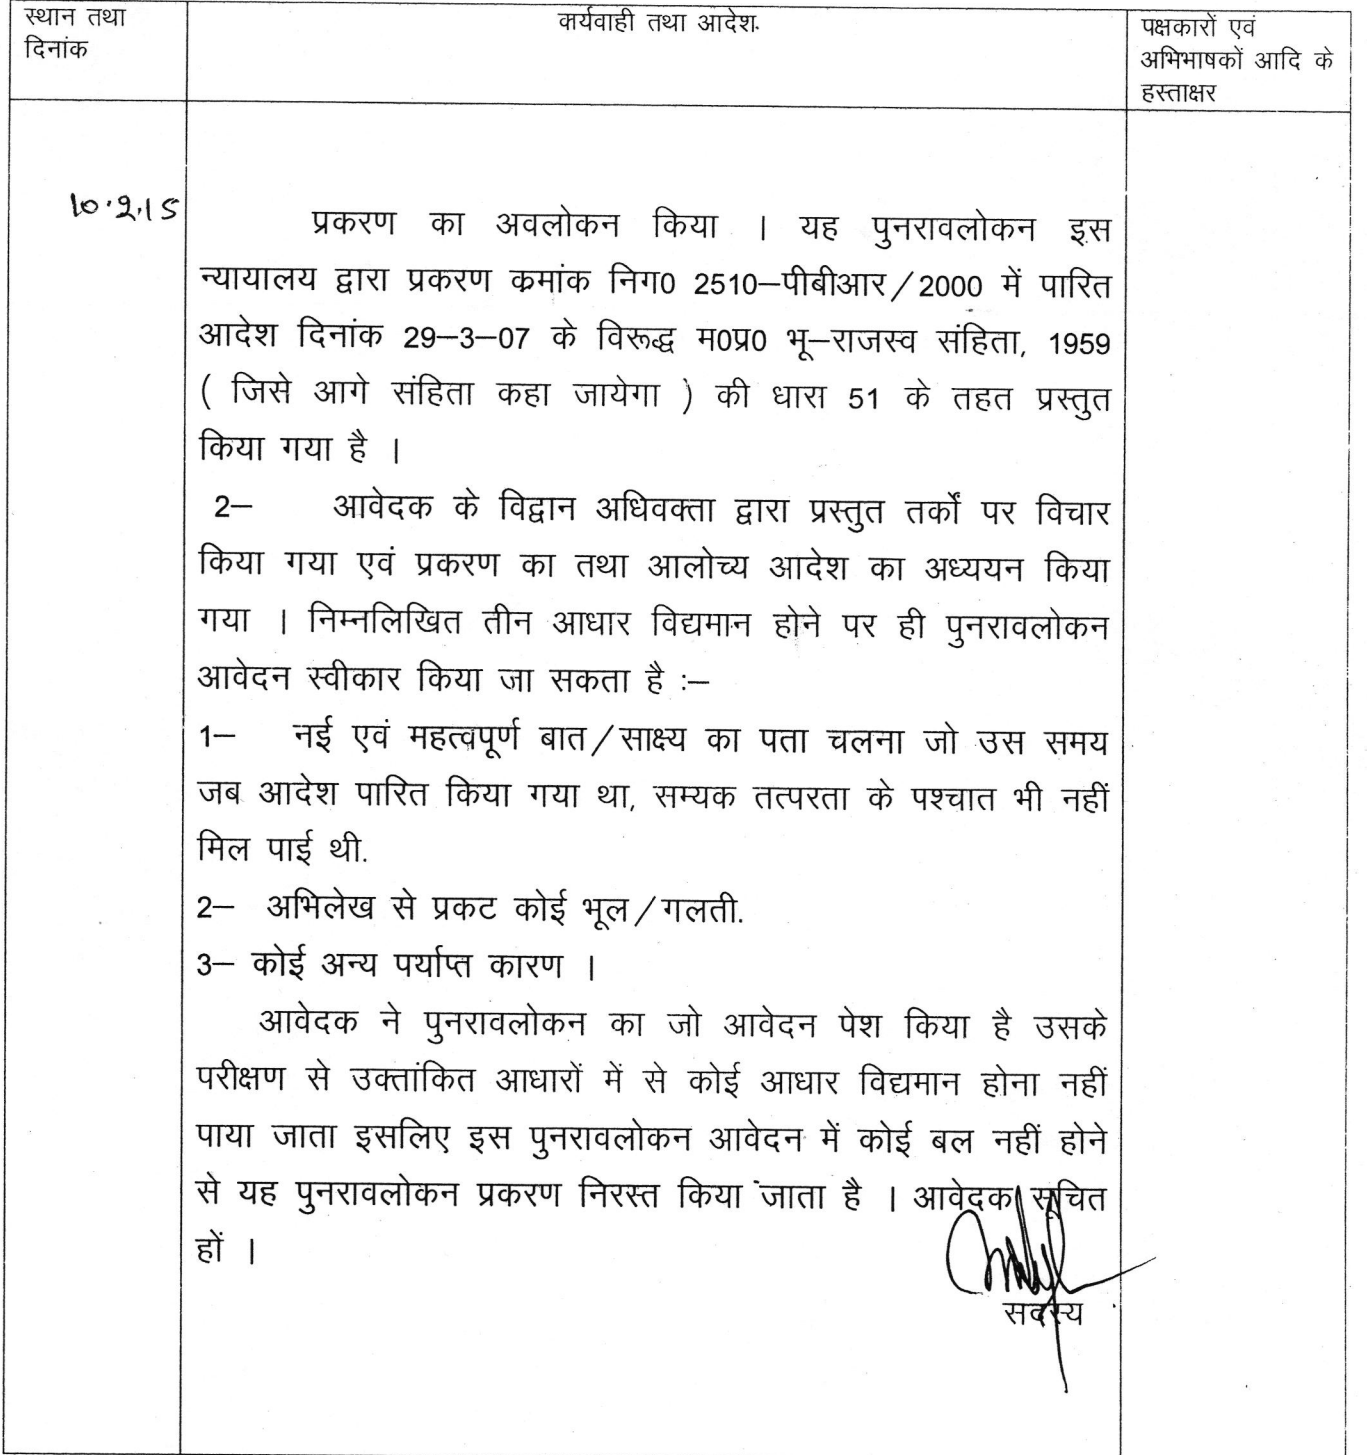 स्थान तथा
दिनांक
कार्यवाही तथा आदेश
पक्षकारों एवं
अभिभाषकों आदि के
हस्ताक्षर
10.2.15
प्रकरण का अवलोकन किया । यह पुनरावलोकन इस
न्यायालय द्वारा प्रकरण क्रमांक निग0 2510—पीबीआर/2000 में पारित
आदेश दिनांक 29—3—07 के विरूद्ध म0प्र0 भू—राजस्व संहिता, 1959
( जिसे आगे संहिता कहा जायेगा ) की धारा 51 के तहत प्रस्तुत
किया गया है ।
2— आवेदक के विद्वान अधिवक्ता द्वारा प्रस्तुत तर्कों पर विचार
किया गया एवं प्रकरण का तथा आलोच्य आदेश का अध्ययन किया
गया । निम्नलिखित तीन आधार विद्यमान होने पर ही पुनरावलोकन
आवेदन स्वीकार किया जा सकता है :—
1— नई एवं महत्वपूर्ण बात/साक्ष्य का पता चलना जो उस समय
जब आदेश पारित किया गया था, सम्यक तत्परता के पश्चात भी नहीं
मिल पाई थी.
2— अभिलेख से प्रकट कोई भूल/गलती.
3— कोई अन्य पर्याप्त कारण ।
आवेदक ने पुनरावलोकन का जो आवेदन पेश किया है उसके
परीक्षण से उक्तांकित आधारों में से कोई आधार विद्यमान होना नहीं
पाया जाता इसलिए इस पुनरावलोकन आवेदन में कोई बल नहीं होने
से यह पुनरावलोकन प्रकरण निरस्त किया जाता है । आवेदक सूचित
हों ।
सदस्य